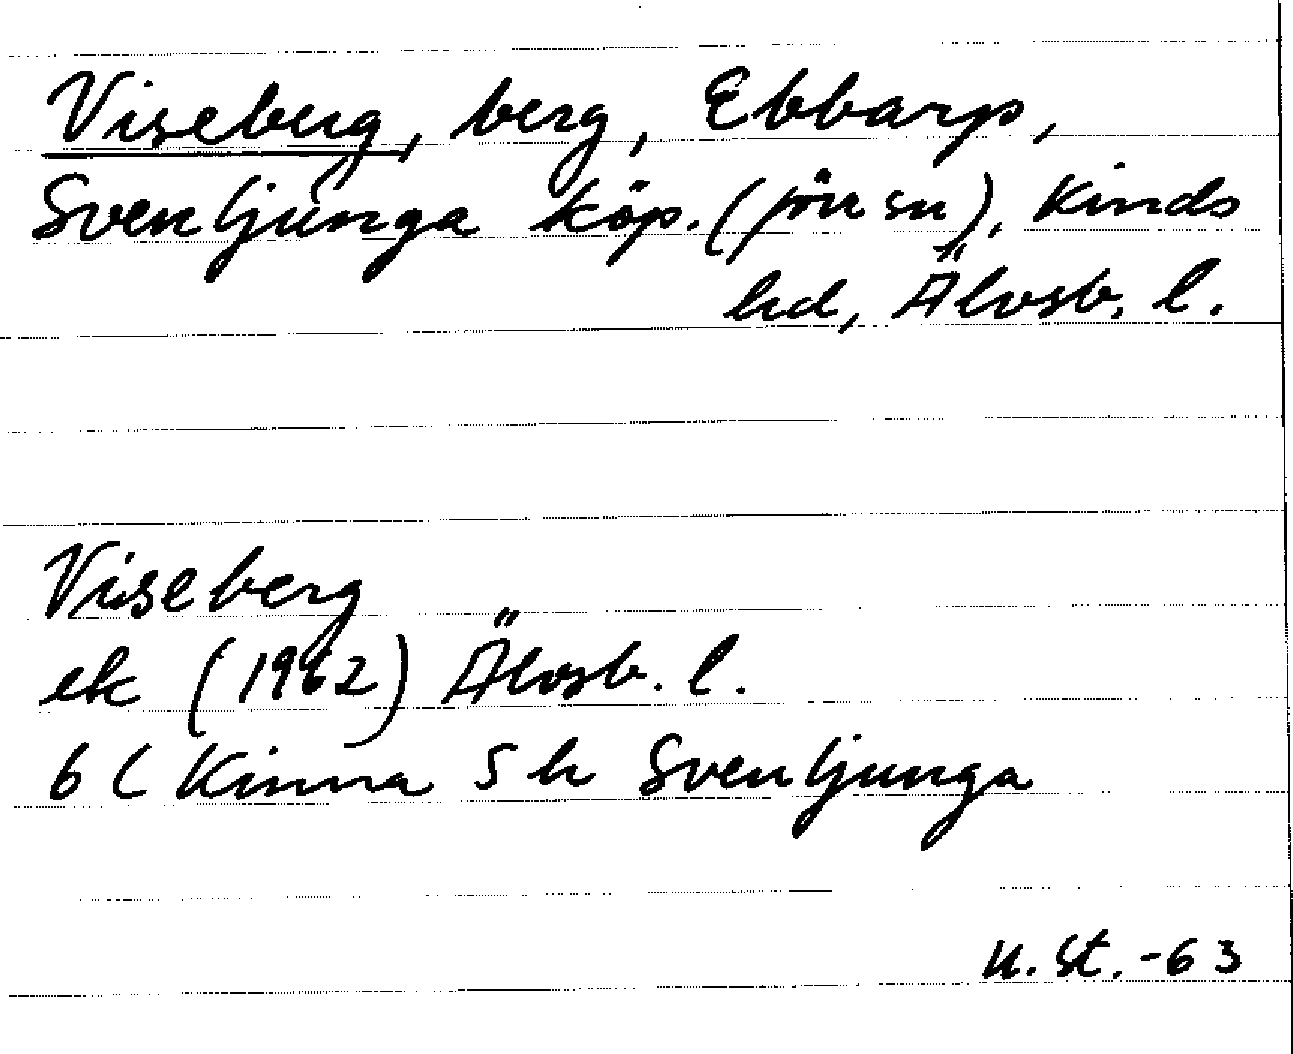 Viseberg, berg, Ebbarp,
Svenljunga köp. (förr sn), Kinds
hd, Älvsb. l.
Viseberg
ek (1962) Älvsb. l.
6 C Kinna 5 h Svenljunga
U. St. -63